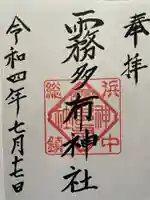 奉拝
霧多布神社
令和四年七月十七日
浜中
総鎮